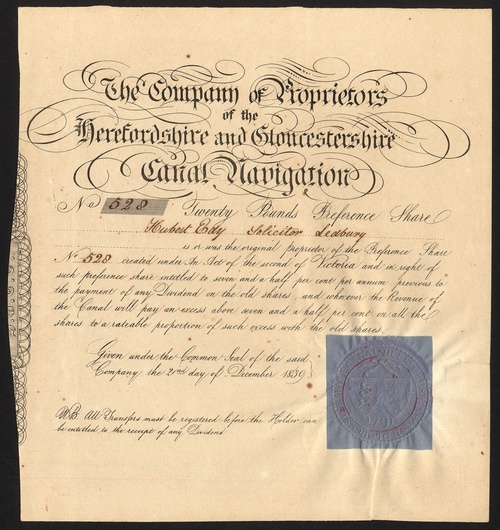 The Company of Proprietors
of the
Herefordshire and Gloucestershire
Canal Navigation
No 528 Twenty Pounds Preference Share
Hubert Edy Solicitor Ledbury
is or was the original proprietor of the Preference Share
No 528 created under An Act of the second of Victoria and in right of
such preference share intitled to seven and a half per cent per annum previous to
the payment of any Dividend on the old shares, and whenever the Revenue of
the Canal will pay an excess above seven and a half per cent on all the
shares to a rateable proportion of such excess with the old shares.
Given under the Common Seal of the said
Company the 20th day of December 1839
NB. All Transfers must be registered before the Holder can
be entitled to the receipt of any Dividend